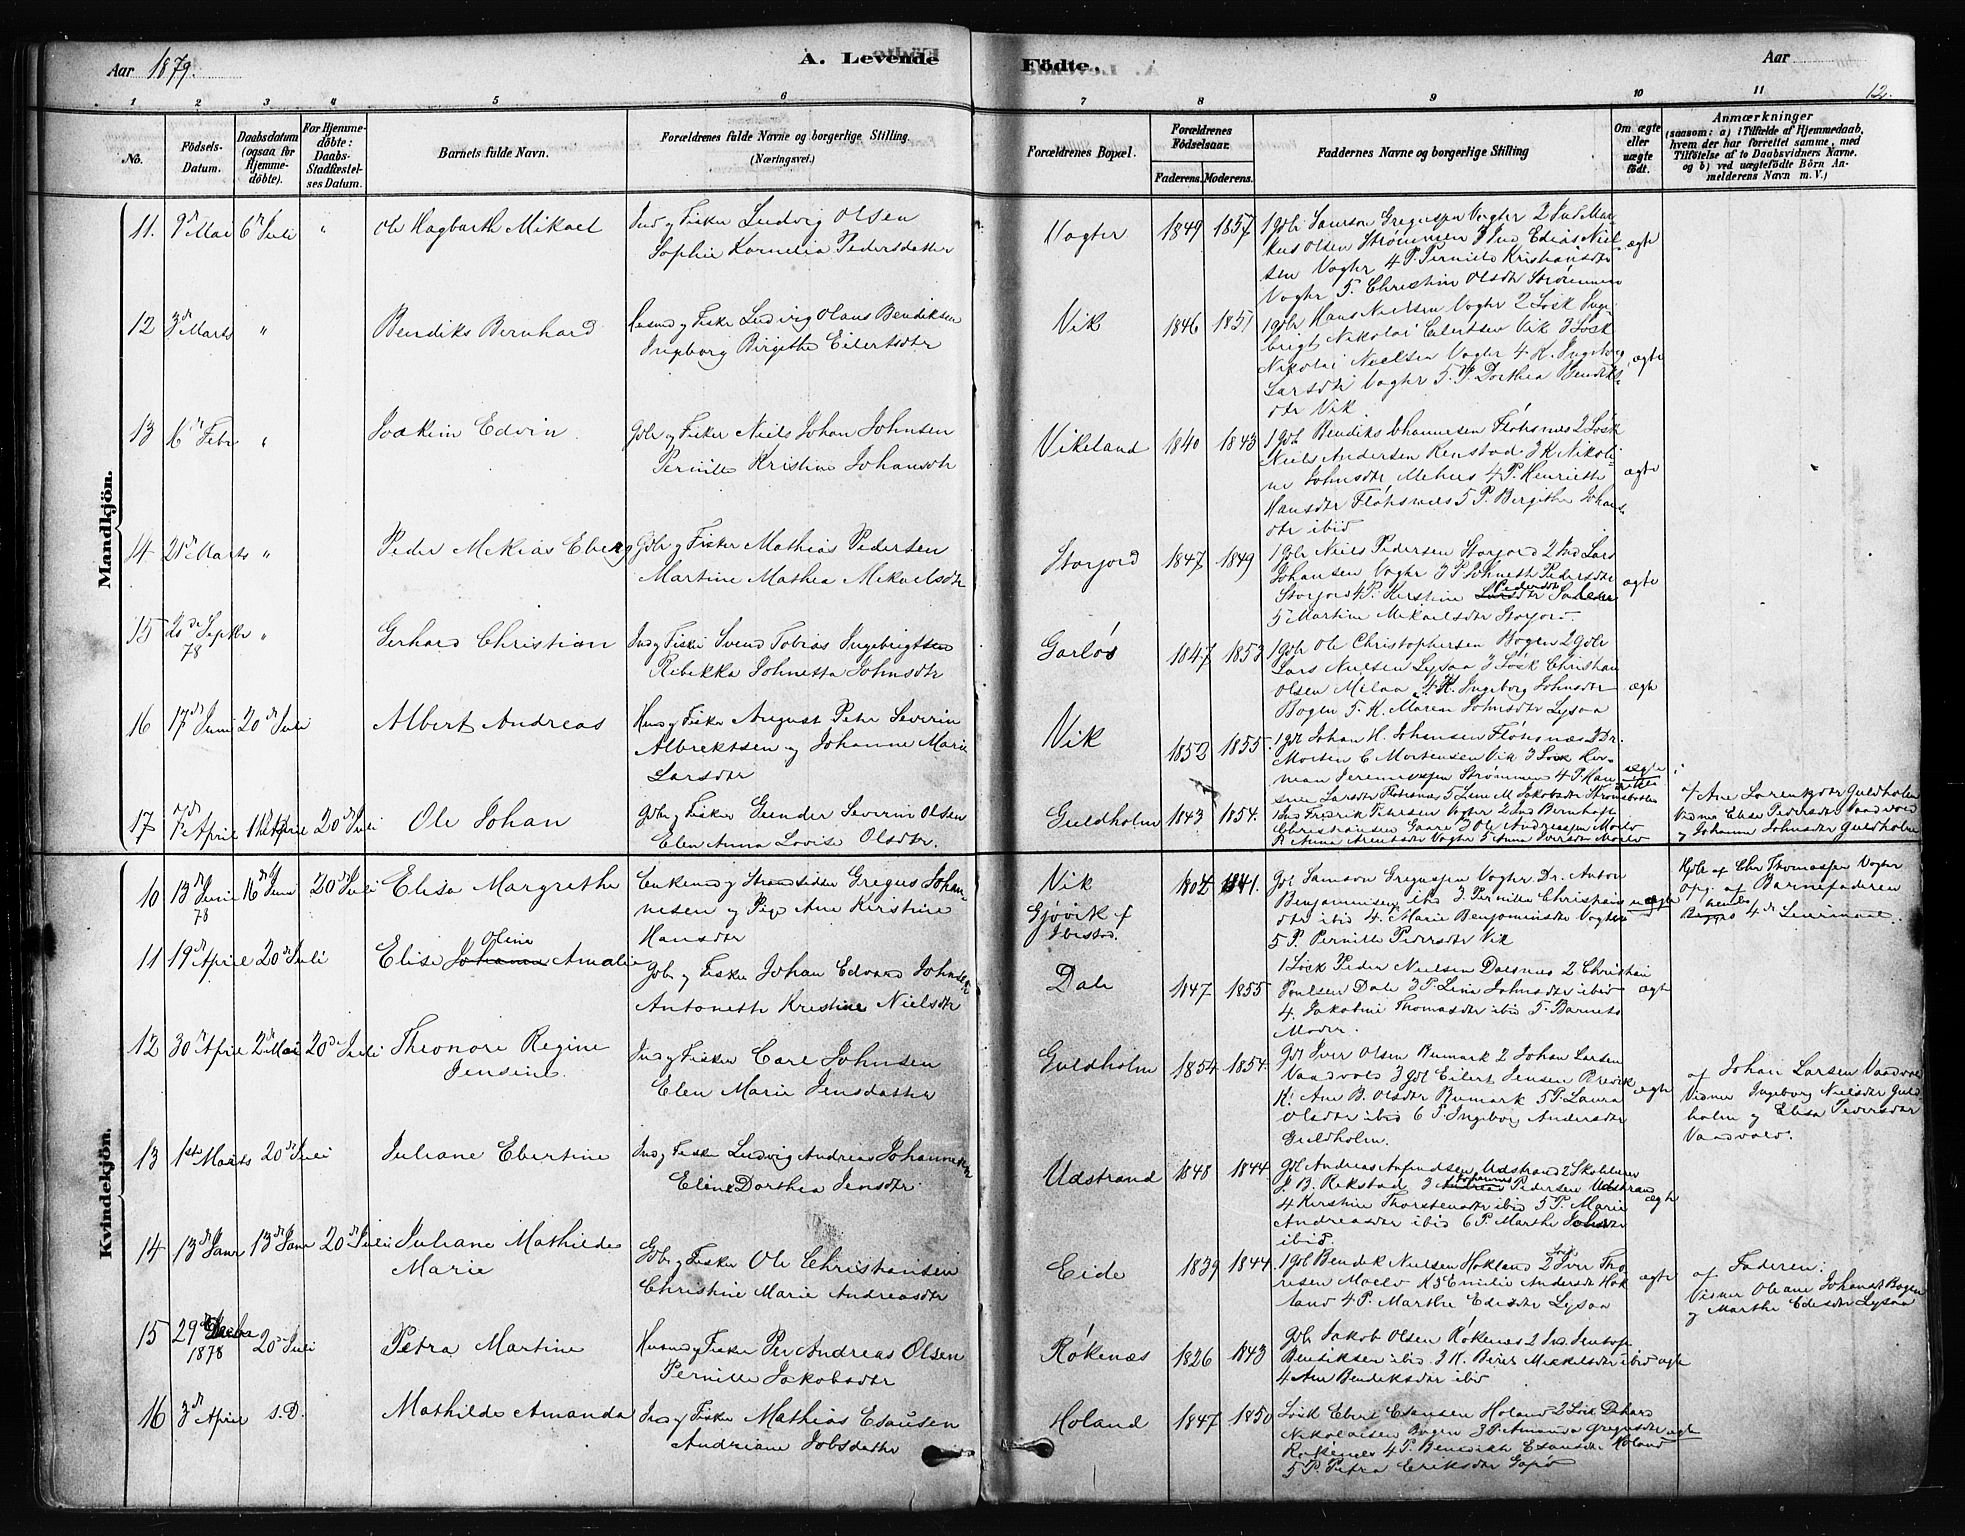 Aar 1879.
A. Levende
Födte.
Aar
12.
1 2 3 4 5 6 7 8 9 10 11
No.
Födsels-Datum.
Daabsdatum (ogsaa for Hjemme-döbte).
For Hjemme-döbte: Daabs-Stadfæstel-ses Datum.
Barnets fulde Navn.
Forældrenes fulde Navne og borgerlige Stilling. (Næringsvei.)
Forældrenes Bopæl.
Forældrenes Födselsaar.
Faderens. Moderens.
Faddernes Navne og borgerlige Stilling
Om ægte eller uægte födt.
Anmærkninger
(saasom: a) i Tilfælde af Hjemmedaab, hvem der har forrettet samme, med Tilföielse af to Daabsvidners Navne. og b) ved uægtefödte Börn An-melderens Navn m. V.)
Mandkjön.
11. 9de Mai 6te Juli " Ole Hagbarth Mikael
Ind og Fisker Ludvig Olsen
Sophie Kornelia Pedersdatter
Vogter 1849 1857
1 Gdbr Samson Gregusen Vogter 2 Ind Mar-
kus Olsen Strømmen 3 Ind Edias Niel-
sen Vogter 4 P. Pernille Kristiansdtr
Vogter 5. Christine Olsdtr Strømmen
ægte
12 3de Marts " Bendiks Bernhard
Husmd og Fisker Ludvig Olaus Bendiksen
Ingeborg Birgithe Eilertsdtr
Vik 1846 1851
1 Gdbr Hans Nielsen Vogter 2 Løsk Inge-
brigt Nikolai Eilertsen Vik 3 Løsk
Nikolai Nielsen Vogter 4 K. Ingeborg
Larsdtr Vogter 5. P. Dorthea Bendiks-
dtr Vik
ægte
13 16de Febr " Joakim Edvin
Gdbr og Fisker Niels Johan Johnsen
Pernille Kristine Johansdtr
Vikeland 1840 1843
1 Gdb Bendiks Johannesen Fløhsnes 2 Løsk
Niels Andersen Renstad 3 K Nikoli-
ne Johnsdtr Melnes 4 P. Henriethe
Hansdtr Fløhsnes 5 P. Bergithe Johans-
dtr ibid
ægte
14 21de Marts " Peder Mekias Eberg
Gdbr og Fisker Mathias Pedersen
Martine Mathea Mikaelsdtr
Storjord 1847 1849
1 Gdbr Niels Pedersen Storjord 2 Ind Lars
Johansen Vogter 3 P. Johneth Pedersdtr
Storjord 4 P. Kerstine Larsdtr Pedersdtr
5 Martine Mikaelsdtr Storjord
ægte
15 28de Septbr 78 " Gerhard Christian
Ind og Fisker Svend Tobias Ingebrigtsen
Rebekka Johnetta Johnsdtr
Garløs 1847 1853
1 Gdbr Ole Christophersen Bogen 2 Gdbr
Lars Nielsen Lysaa 3 Løsk Christian
Olsen Melaa 4 K. Ingeborg Johnsdtr
Bogen 5. K. Maren Johnsdtr Lysaa
ægte
16 17de Juni 20de Juli Albert Andreas
Husmd og Fisker August Peter Severin
Albrektsen og Johanne Marie
Larsdtr
Vik 1852 1855.
1 Gdb Johan H. Johansen Fløhsnes 2 Dr.
Morten C Mortensen Vik 3 Løsk Her-
man Jeremiassen Strømmen 4 P. Han-
sine Larsdtr Fløhsnes 5 Lene M Jakobsdtr Strømsbotn
ægte
17 7de April 11te April 20de Juli Ole Johan
Gdbr og Fisker Gunder Severin Olsen
Elen Anna Lovise Olsdtr.
Guldholm 1843 1854.
1 Ind Fredrik Petersen Vogter 2 Ind Bernhoft
Christiansen Gaare 3 Ole Andreassen Moelv
K Anne Arentsdtr Vogter 5 Anna Iversdtr Moelv
ægte
af Ane Lorensdtr Guldholm
Vidner Elise Pedersdtr Vaadvold
og Johanna Johnsdtr Guldholm
Kvindekjön.
10 13de Juni 78 16de Juni 20de Juli Elisa Margrethe
Enkemd og Strandsidder Gregus Johan-
nesen og Pige Ane Kirstine
Hansdtr
Vik
Gjøvik f
Ibestad.
1804 1841.
Gdb Samson Gregusen Vogter Dr. Anton
Benjaminsen ibid 3. Pernille Christians
dtr ibid 4. Marie Benjaminsdtr Vogter
5 P. Pernille Pedersdtr Vik
uægte
Hjdb af Chr Thomassen Vogter
opg: af Barnefaderen
Begges 4de Leiermaal.
11 19de April 20de Juli Elise Johanna Oline Amalie
Gdbr og Fisker Johan Edvard Johnsen
Antoneth Kristine Nielsdtr
Dale 1847 1855
1 Løsk Peder Nielsen Dalsnes 2 Christian
Poulsen Dale 3 P. Lina Johnsdtr ibid
4. Jakobine Thomasdtr ibid 5. Barnets
Moder.
ægte
12 30de April 2de Mai 20de Juli Theonore Regine
Jensine.
Ind og Fisker Carl Johnsen
Elen Marie Jensdatter
Guldholm 1854 1854.
Gdb Iver Olsen Bumark 2 Johan Larsen
Vaadvold 3 Gdb Eilert Jensen Brevik
K. Ane B. Olsdtr Rumark 5 P. Laura
Olsdtr ibid 6 P. Ingeborg Andersdtr
Guldholm.
ægte
af Johan Larsen Vaadvold
Vidner Ingeborg Nielsdtr Guld-
holm og Elisa Pedersdtr
Vaadvold.
13 1ste Marts 20de Juli Juliane Ebertine
Ind og Fisker Ludvig Andreas Johannesen
Eline Dorthea Jensdtr
Udstrand 1848 1844
Gdb Andreas Anfindsen Udstrand 2 Skolelærer
J. B. Rekstad 3 Andreas Pedersen Udstrand
4 Kerstine Thorstensdtr ibid 5 P. Marie
Andreasdtr ibid 6 P. Marthe Johsdtr
ibid.
ægte
14 13de Janr 13de Janr 20de Juli Juliane Mathilde
Marie
Gdbr og Fisker Ole Christiansen
Christine Marie Andreasdtr
Eide 1839 1844
1 Gdb Bendik Nielsen Hokland 2 Løsk Iver Tho-
resen Moelv K 3 Emilie Andersdtr Hok
land 4 P. Marthe Edisdtr Lysaa
ægte
af Faderen.
Vidner Oleane Johansdtr Bogen
og Marthe Edisdtr Lysaa
15 29de Decbr 1878 20de Juli Petra Martine
Husmd og Fisker Per Andreas Olsen
Pernille Jakobsdtr
Røkenæs 1826 1843
Gdb Jakob Olsen Røkenes 2 Ind Jentoft
Bendiksen ibid 3 K. Berit Mikkelsdtr ibid
4 Ane Bendiksdtr ibid
ægte
16 3de April s.D. Mathilde Amanda
Ind og Fisker Mathias Esausen
Andriane Jobsdatter
Holand 1847 1850
Løsk Ebert Esausen Holand 2 Løsk Dekard
Nikolaisen Bogen 3 P Amanda Gregusdtr
Røkenes 4 P. Benedikte Esausdtr Holand
5 P. Petra Eriksdtr Gapø
ægte